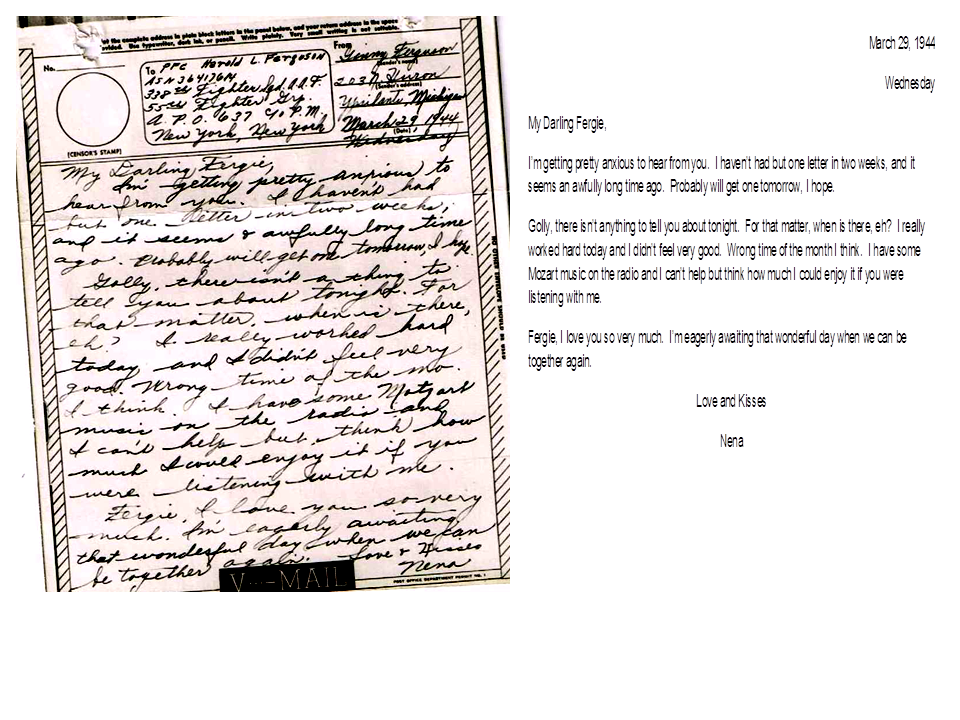 nt the complete address in plain block letters in the panel below, and your return address in the space
vided. Use typewriter, dark ink, or pencil. Write plainly. Very small writing is not suitable.
No.
To PFC Harold L. Ferguson
ASN
338th Fighter Sqd. A.A.F.
55th Fighter Grp.
A. P. O. 637 c/o P.M.
New York, New York
(CENSOR'S STAMP)
From
Ferguson
(Sender's name)
203 N Huron
(Sender's address)
Ypsilanti Michigan
March 29 1944
(Date)
Wednesday
My Darling Fergie,
I'm getting pretty anxious to
hear from you. I haven't had
but one letter in two weeks,
and it seems & awfully long time
ago. Probably will get one tomorrow, I hope.
Golly, there isn't a thing to
tell you about tonight. For
that matter, when is there,
eh? I really worked hard
today, and I didn't feel very
good. Wrong time of the mo.
I think. I have some Motzart
music on the radio and
I can't help but think how
much I could enjoy it if you
were listening with me.
Fergie, I love you so very
much. I'm eagerly awaiting
that wonderful day when we can
be together again. Love & Kisses
Nena
V···-MAIL
POST OFFICE DEPARTMENT PERMIT NO. 1
March 29, 1944
Wednesday
My Darling Fergie,
I'm getting pretty anxious to hear from you. I haven't had but one letter in two weeks, and it
seems an awfully long time ago. Probably will get one tomorrow, I hope.
Golly, there isn't anything to tell you about tonight. For that matter, when is there, eh? I really
worked hard today and I didn't feel very good. Wrong time of the month I think. I have some
Mozart music on the radio and I can't help but think how much I could enjoy it if you were
listening with me.
Fergie, I love you so very much. I'm eagerly awaiting that wonderful day when we can be
together again.
Love and Kisses
Nena